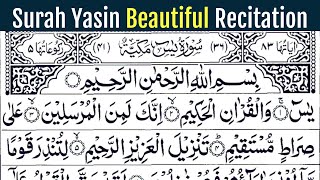 Surah Yasin Beautiful Recitation
اٰيَاتُهَا ٨٣ (٣٦) سُوْرَةُ يٰسٓ مَكِّيَّةٌ (٤١) رُكُوْعَاتُهَا ٥
بِسْمِ اللّٰهِ الرَّحْمٰنِ الرَّحِيْمِ
يٰسٓ ۚ وَالْقُرْاٰنِ الْحَكِيْمِ ۙ اِنَّكَ لَمِنَ الْمُرْسَلِيْنَ ۙ عَلٰى
صِرَاطٍ مُّسْتَقِيْمٍ ؕ تَنْزِيْلَ الْعَزِيْزِ الرَّحِيْمِ ۙ لِتُنْذِرَ قَوْمًا